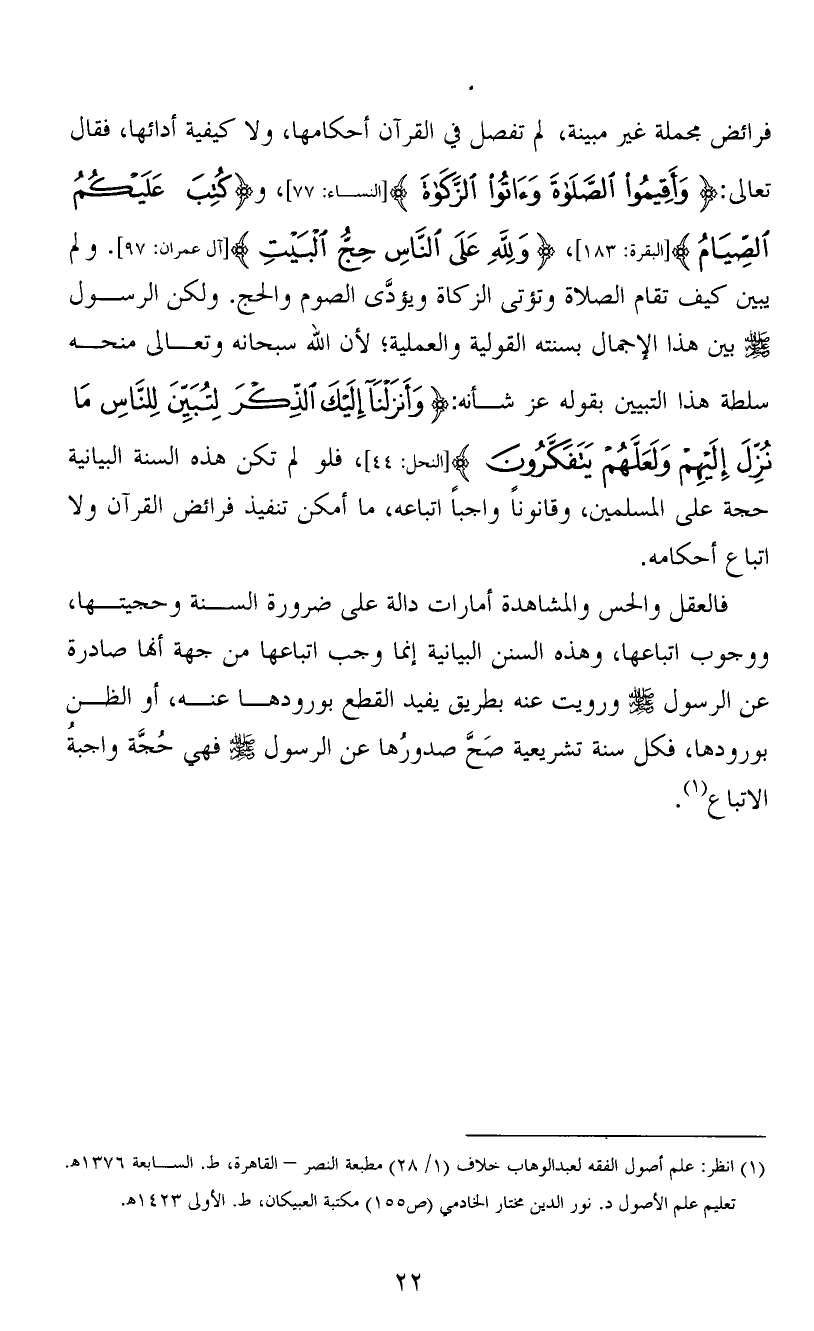 فرائض مجملة غير مبينة، لم تفصل في القرآن أحكامها، ولا كيفية أدائها، فقال
تعالى: ﴿ وَأَقِيمُوا۟ ٱلصَّلَوٰةَ وَءَاتُوا۟ ٱلزَّكَوٰةَ ﴾[النساء: ٧٧]، و﴿كُتِبَ عَلَيْكُمُ
ٱلصِّيَامُ ﴾[البقرة: ١٨٣]، ﴿ وَلِلَّهِ عَلَى ٱلنَّاسِ حِجُّ ٱلْبَيْتِ ﴾[آل عمران: ٩٧]. ولم
يبين كيف تقام الصلاة وتؤتى الزكاة ويؤدَّى الصوم والحج. ولكن الرسول
ﷺ بين هذا الإجمال بسنته القولية والعملية؛ لأن الله سبحانه وتعالى منحه
سلطة هذا التبيين بقوله عز شأنه: ﴿ وَأَنزَلْنَآ إِلَيْكَ ٱلذِّكْرَ لِتُبَيِّنَ لِلنَّاسِ مَا
نُزِّلَ إِلَيْهِمْ وَلَعَلَّهُمْ يَتَفَكَّرُونَ ﴾[النحل: ٤٤]، فلو لم تكن هذه السنة البيانية
حجة على المسلمين، وقانوناً واجباً اتباعه، ما أمكن تنفيذ فرائض القرآن ولا
اتباع أحكامه.
فالعقل والحس والمشاهدة أمارات دالة على ضرورة السنة وحجيتها،
ووجوب اتباعها، وهذه السنن البيانية إنما وجب اتباعها من جهة أنها صادرة
عن الرسول ﷺ ورويت عنه بطريق يفيد القطع بورودها عنه، أو الظن
بورودها، فكل سنة تشريعية صَحَّ صدورُها عن الرسول ﷺ فهي حُجَّة واجبةُ
الاتباع(١).
(١) انظر: علم أصول الفقه لعبدالوهاب خلاف (١/ ٢٨) مطبعة النصر – القاهرة، ط. السابعة ١٣٧٦هـ.
تعليم علم الأصول د. نور الدين مختار الخادمي (ص١٥٥) مكتبة العبيكان، ط. الأولى ١٤٢٣هـ.
٢٢